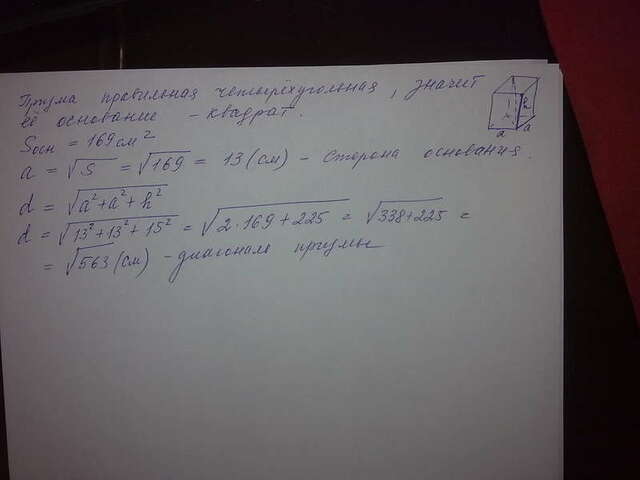 Призма правильная четырёхугольная, значит
её основание - квадрат.
h
a
a
Sосн = 169 см²
a = √S = √169 = 13 (см) - сторона основания.
d = √a² + a² + h²
d = √13² + 13² + 15² = √2·169 + 225 = √338 + 225 =
= √563 (см) - диагональ призмы